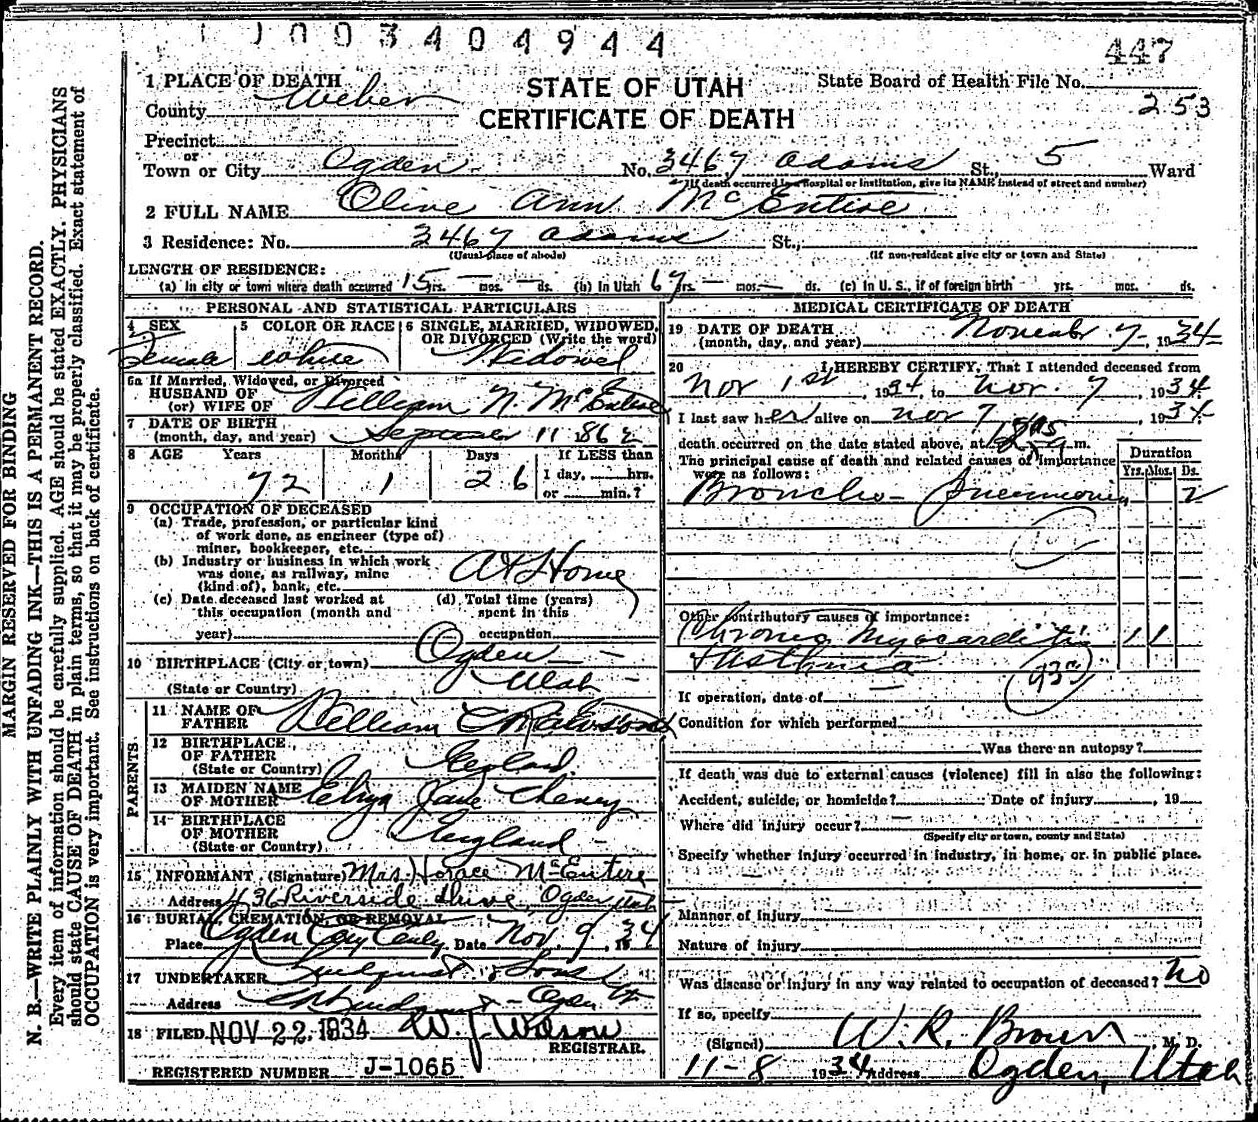 1 0 0 3 4 0 4 9 4 4
447
1 PLACE OF DEATH
STATE OF UTAH
State Board of Health File No.
County Weber
253
CERTIFICATE OF DEATH
Precinct
or
Town or City Ogden No. 3467 Adams St., 5 Ward
(If death occurred in a hospital or institution, give its NAME instead of street and number)
2 FULL NAME Olive Ann McEntire
3 Residence: No. 3467 Adams St.,
(Usual place of abode) (If non-resident give city or town and State)
LENGTH OF RESIDENCE:
(a) In city or town where death occurred 15 yrs. — mos. — ds. (b) In Utah 67 yrs. — mos. — ds. (c) In U. S., if of foreign birth yrs. mos. ds.
PERSONAL AND STATISTICAL PARTICULARS
4 SEX Female
5 COLOR OR RACE white
6 SINGLE, MARRIED, WIDOWED, OR DIVORCED (Write the word) Widowed
6a If Married, Widowed, or Divorced
HUSBAND OF
(or) WIFE OF William N. McEntire
7 DATE OF BIRTH
(month, day, and year) September 11 1862
8 AGE Years Months Days If LESS than
72 1 26 1 day, hrs.
or min.?
9 OCCUPATION OF DECEASED
(a) Trade, profession, or particular kind
of work done, as engineer (type of)
miner, bookkeeper, etc.
(b) Industry or business in which work
was done, as railway, mine
(kind of), bank, etc. At Home
(c) Date deceased last worked at
this occupation (month and
year)
(d) Total time (years)
spent in this
occupation
10 BIRTHPLACE (City or town) Ogden
(State or Country) Utah
PARENTS
11 NAME OF
FATHER William
12 BIRTHPLACE
OF FATHER
(State or Country) England
13 MAIDEN NAME
OF MOTHER Eliza Jane Cheney
14 BIRTHPLACE
OF MOTHER
(State or Country) England
15 INFORMANT (Signature) Mrs. Horace McEntire
Address 436 Riverside Drive, Ogden Utah
16 BURIAL, CREMATION, OR REMOVAL
Place Ogden City Date Nov. 9, 1934
17 UNDERTAKER Lindquist & Sons
Address Ogden
18 FILED NOV 22, 1934 W. J. Wilson
REGISTRAR.
REGISTERED NUMBER J-1065
MEDICAL CERTIFICATE OF DEATH
19 DATE OF DEATH
(month, day, and year) November 7- 1934
20 I HEREBY CERTIFY, That I attended deceased from
Nov 1st, 1934, to Nov. 7, 1934
I last saw her alive on Nov 7, 1934
death occurred on the date stated above, at m.
The principal cause of death and related causes of importance
were as follows:
Duration
Yrs. Mos. Ds.
Broncho- Pneumonia 2
Other contributory causes of importance:
Chronic Myocarditis
+ Asthma
If operation, date of
Condition for which performed
Was there an autopsy?
If death was due to external causes (violence) fill in also the following:
Accident, suicide, or homicide? Date of injury , 19
Where did injury occur?
(Specify city or town, county and State)
Specify whether injury occurred in industry, in home, or in public place.
Manner of Injury
Nature of Injury
Was disease or injury in any way related to occupation of deceased? No
If so, specify
(Signed) W. R. Brown M. D.
11-8 1934 Address Ogden, Utah
MARGIN RESERVED FOR BINDING
N. B.—WRITE PLAINLY WITH UNFADING INK—THIS IS A PERMANENT RECORD.
Every item of information should be carefully supplied. AGE should be stated EXACTLY. PHYSICIANS
should state CAUSE OF DEATH in plain terms, so that it may be properly classified. Exact statement of
OCCUPATION is very important. See instructions on back of certificate.